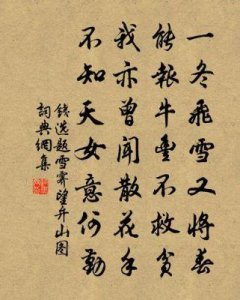 一冬飛雪又將春
能報年豐不救貧
我亦曾聞散花手
不知天女意何勤
錢選題雪霽望弁山圖
詞典網集